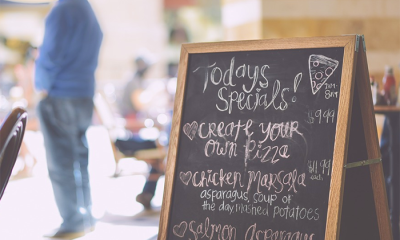 Today's
Specials!
11AM
8PM
$9.99
Create your
own Pizza
$14.99
Chicken Marsala
asparagus, soup of
the day, mashed potatoes
Salmon Asparagus